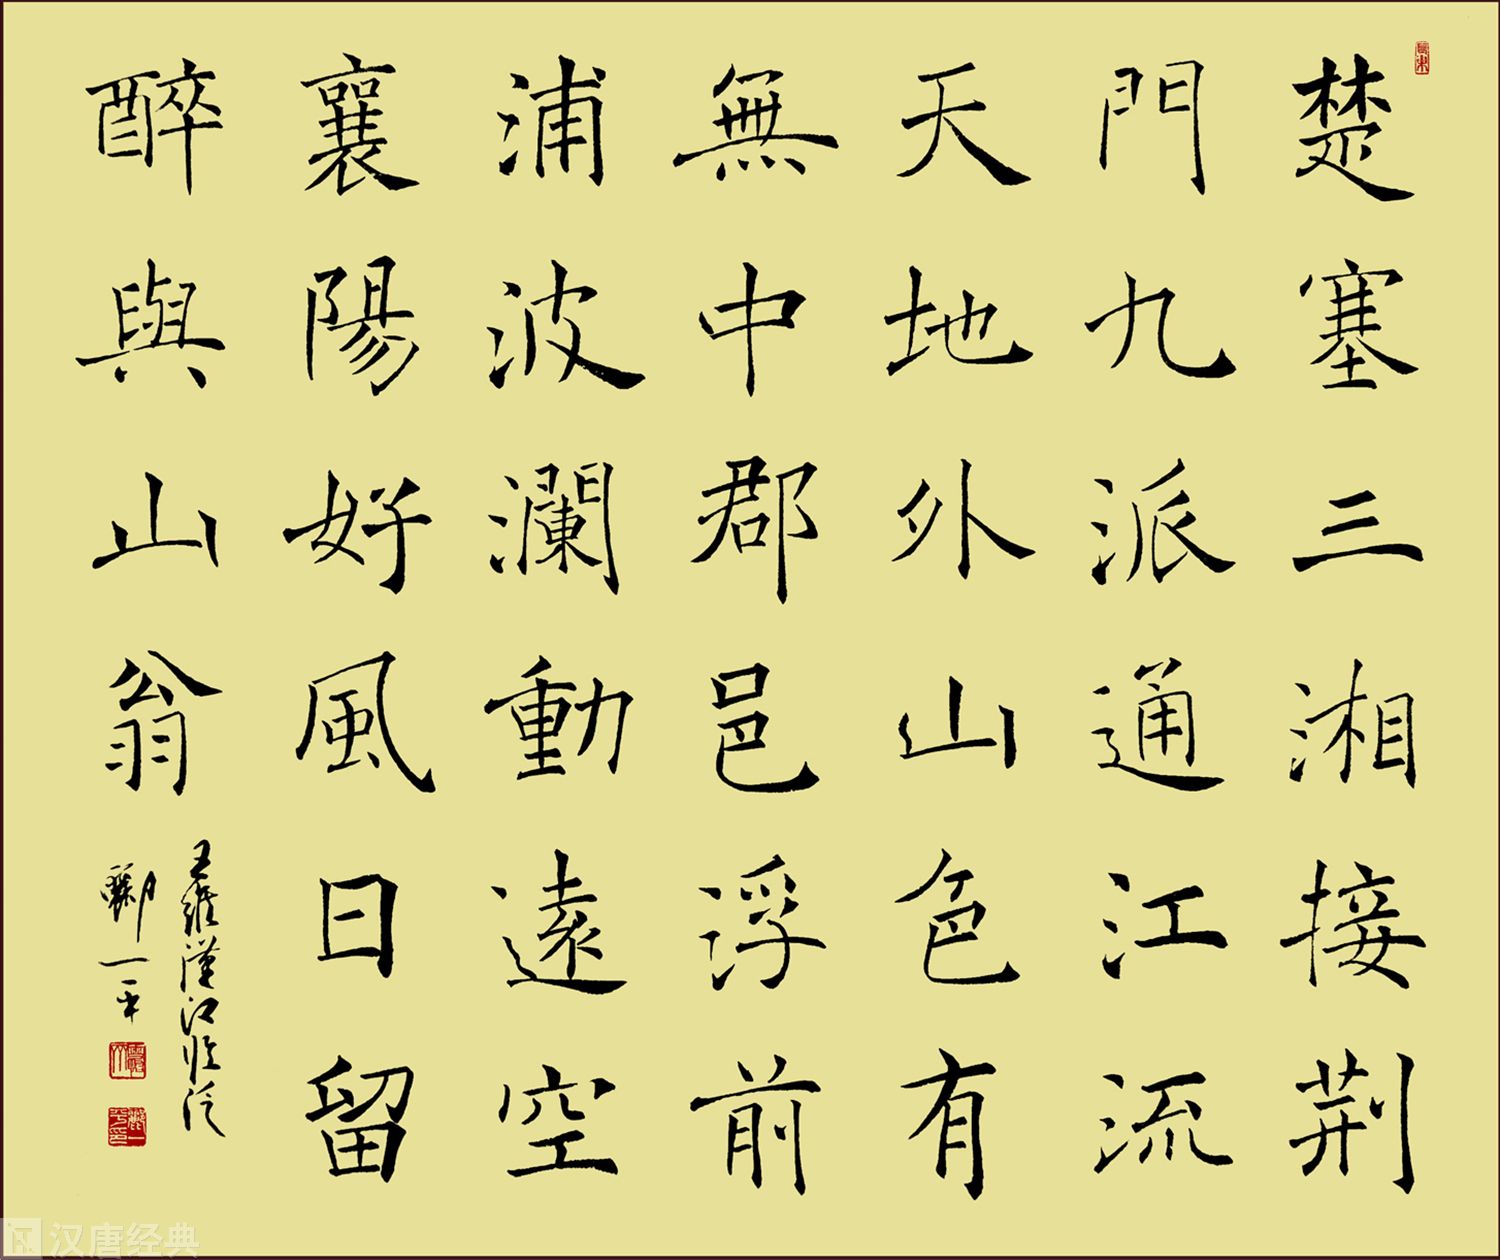 楚塞三湘接荆
門九派通江流
天地外山色有
無中郡邑浮前
浦波瀾動遠空
襄陽好風日留
醉與山翁
王維漢江臨泛
酈一平
汉唐经典